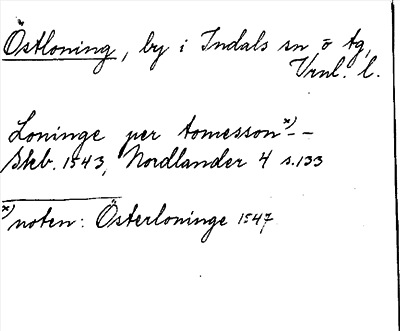 Östloning, by i Indals sn, ö tg,
Vrnl. l.
Loninge per tomesson x) - -
Skb. 1543, Nordlander 4 s.133
x) noten: Österloninge 1547